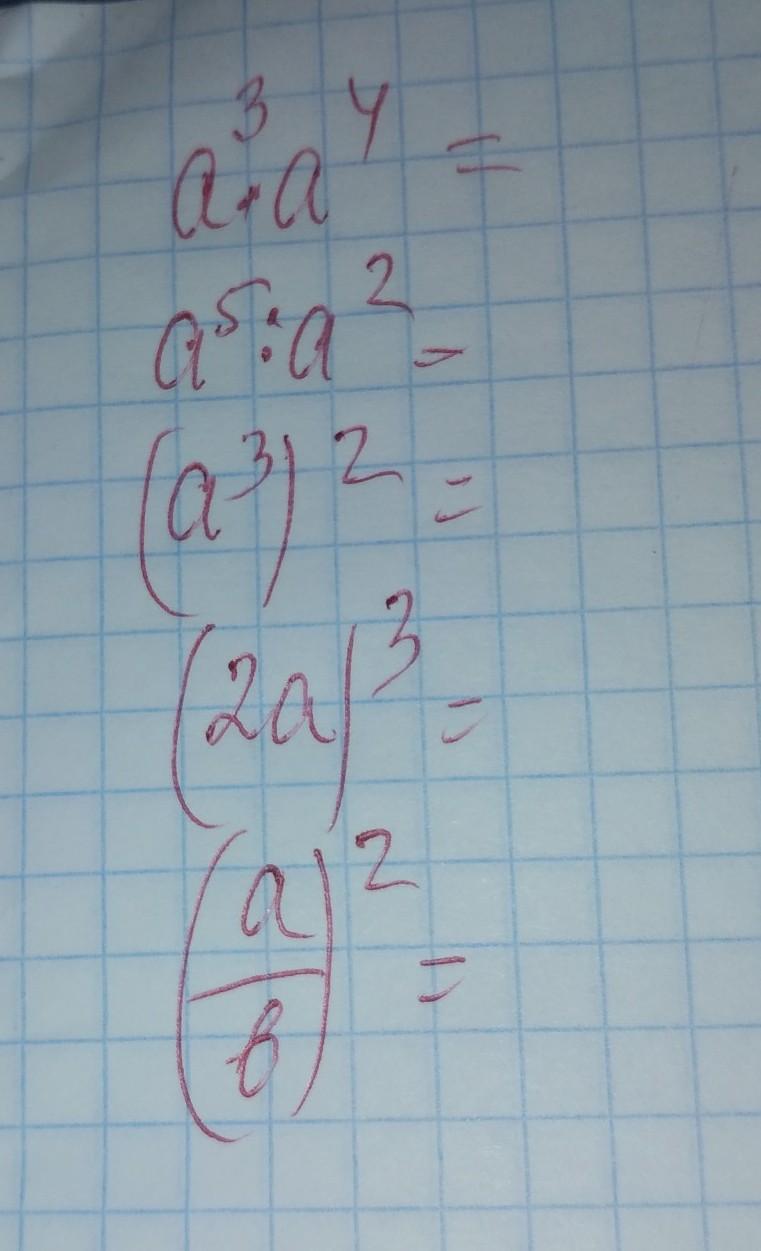 a³·a⁴ =
a⁵:a² =
(a³)² =
(2a)³ =
(a/b)² =